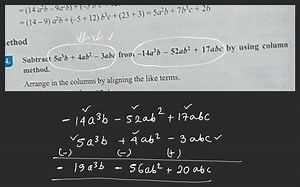 = (14 - 9) a²b + (-5 + 12) b²c + (23 + 3) = 5a²b + 7b²c + 26
ethod
4. Subtract 5a³b + 4ab² - 3abc from -14a³b - 52ab² + 17abc by using column
method.
Arrange in the columns by aligning the like terms.
- 14a³b - 52ab² + 17abc
5a³b + 4ab² - 3abc
(-) (-) (+)
- 19a³b - 56ab² + 20abc